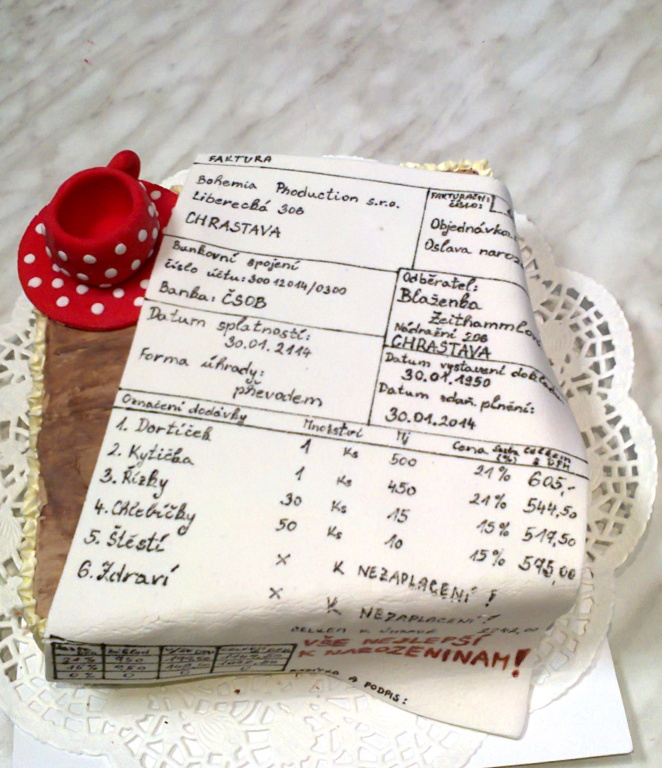 FAKTURA
Bohemia Production s.r.o.
Liberecká 308
CHRASTAVA
FAKTURAČNÍ
ČÍSLO:
Objednávka
Oslava naroz
Bankovní spojení
číslo účtu: 30012014/0300
Banka: ČSOB
Odběratel:
Blaženka
Zeithammlov
Nádražní 208
CHRASTAVA
Datum splatnosti:
30.01.2114
Forma úhrady:
převodem
Datum vystavení dokla
30.01.1950
Datum zdaň. plnění:
30.01.2014
Označení dodávky Množství MJ Cena celkem
1. Dortíček 1 Ks 500 21% 605,-
2. Kytička 1 Ks 450 21% 544,50
3. Řízky 30 Ks 15 15% 517,50
4. Chlebíčky 50 Ks 10 15% 575,00
5. Štěstí X K NEZAPLACENÍ!
6. Zdraví X K NEZAPLACENÍ!
CELKEM K
VŠE NEJLEPŠÍ
K NAROZENINÁM!
21% 950
15% 950
0% 0 0
A PODPIS: